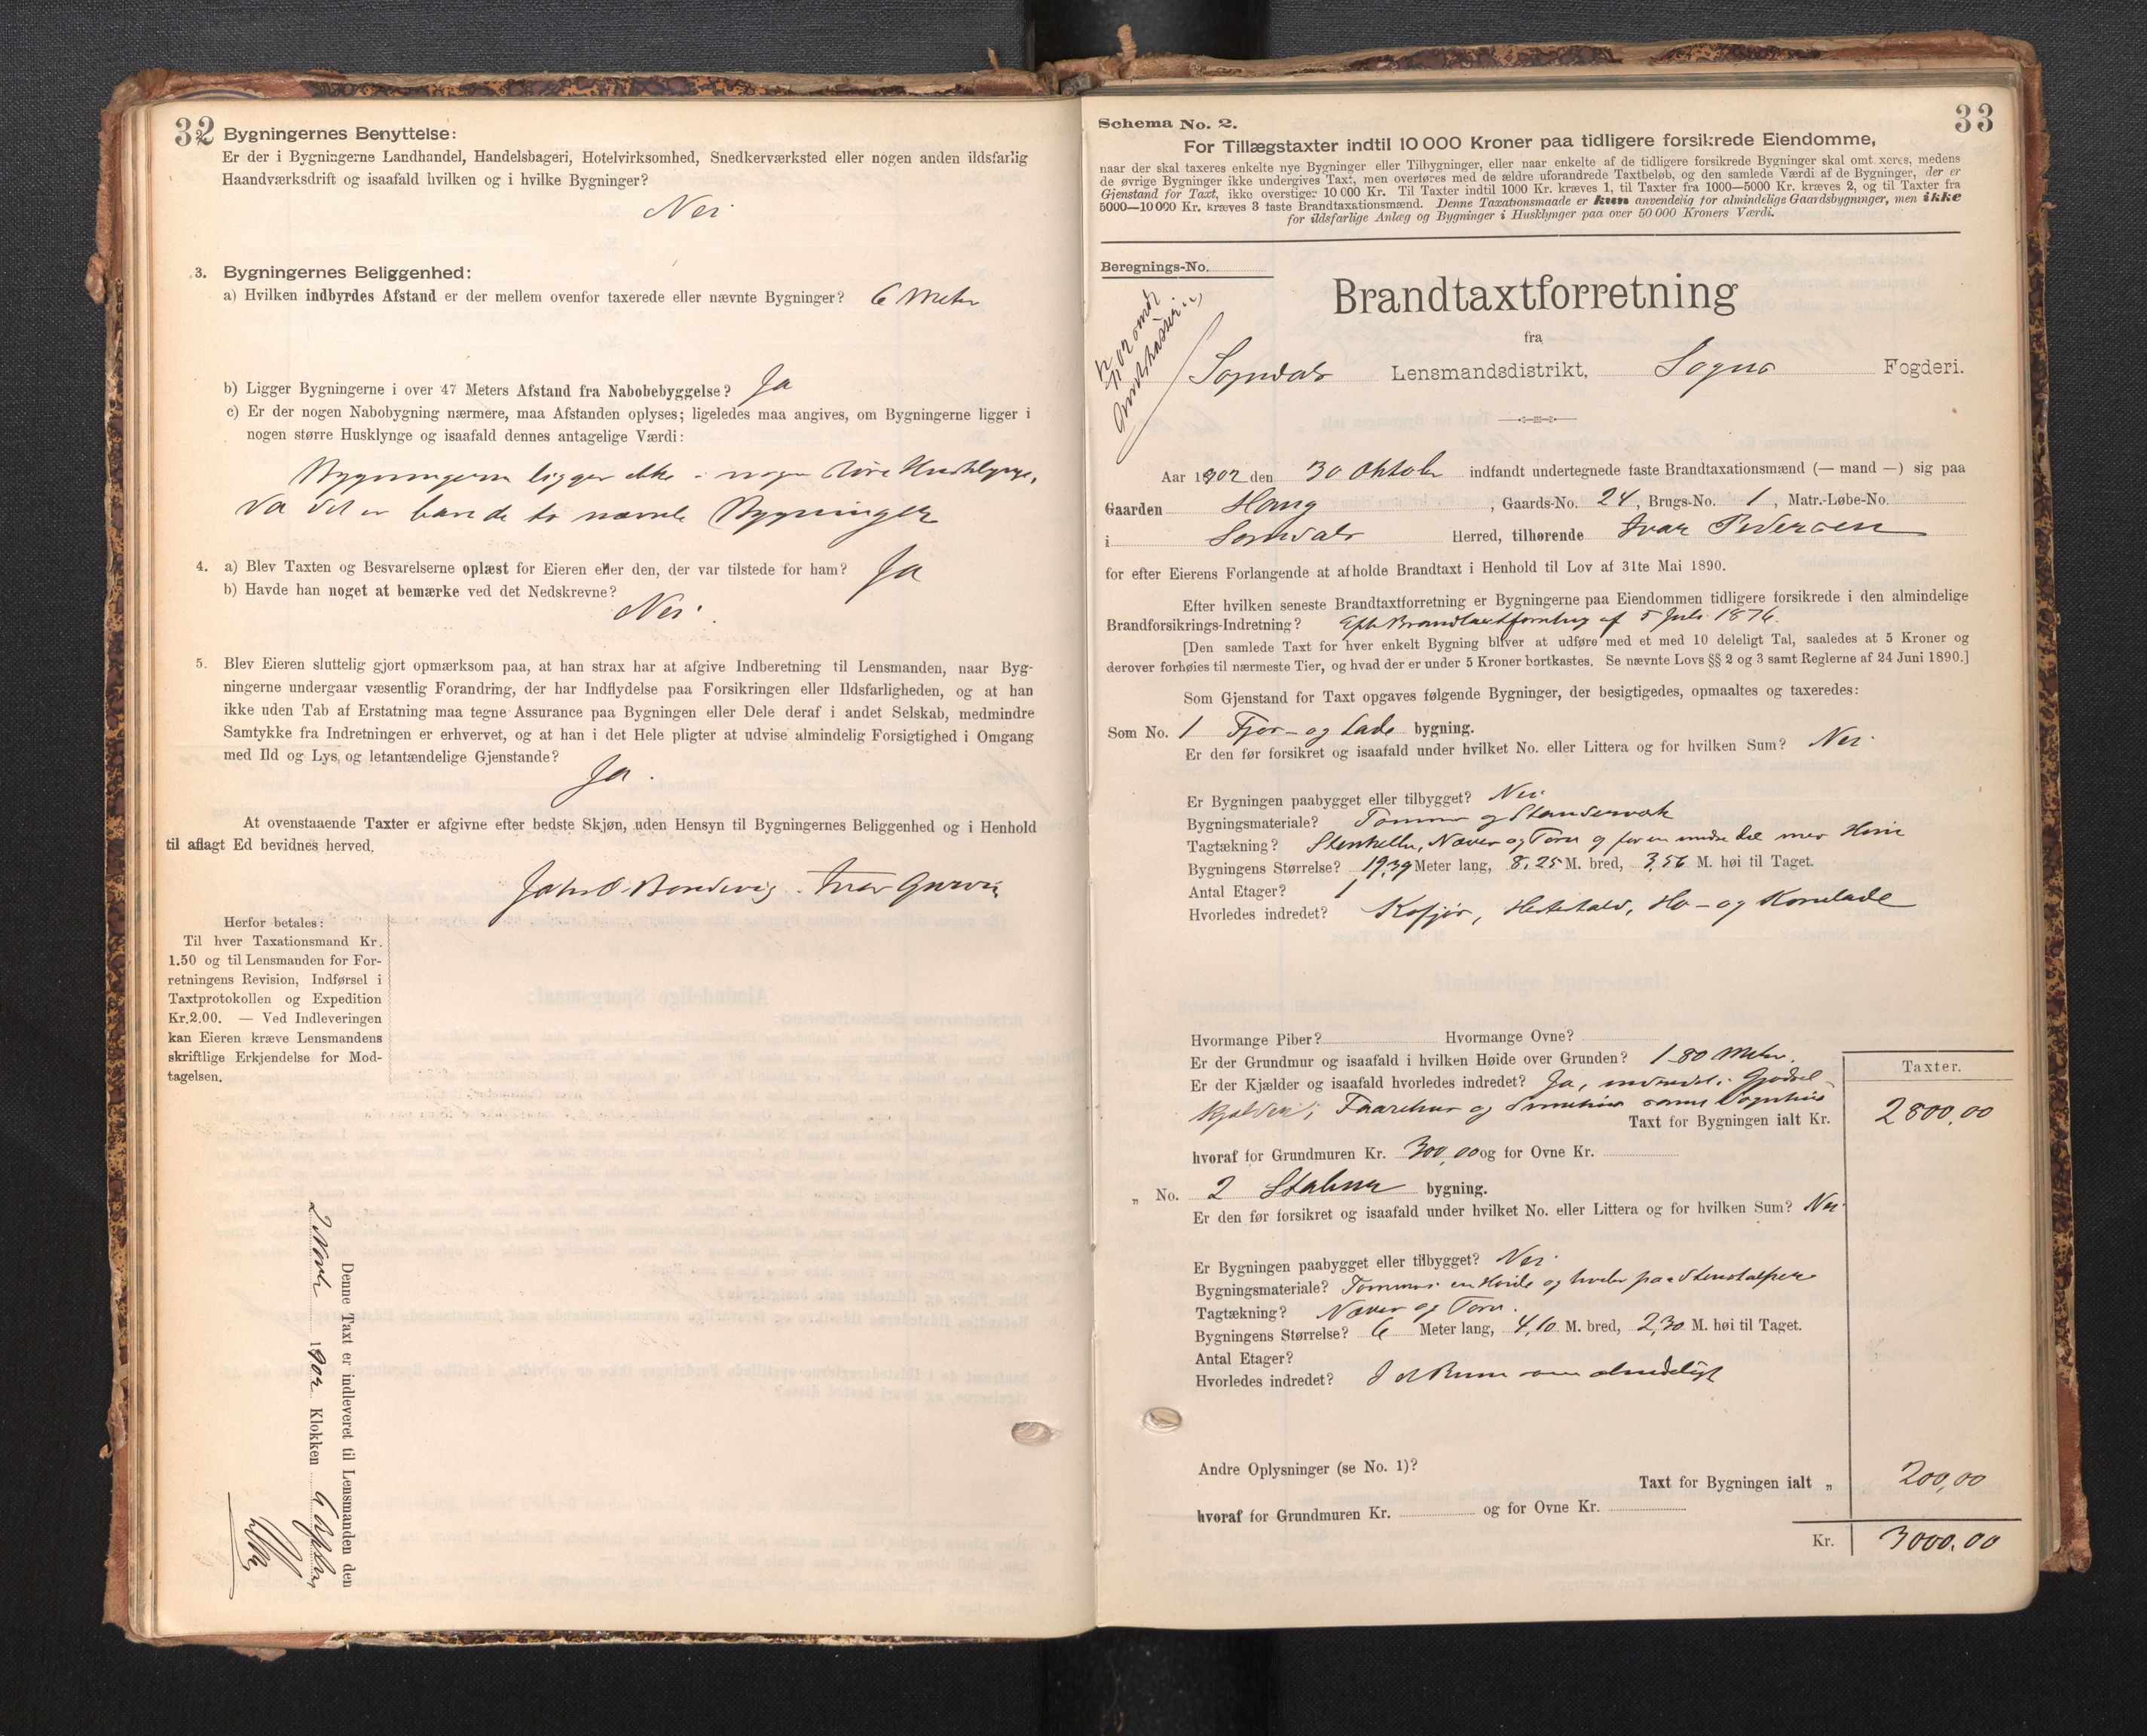 32
Bygningernes Benyttelse:
Er der i Bygningerne Landhandel, Handelsbageri, Hotelvirksomhed, Snedkerværksted eller nogen anden ildsfarlig
Haandværksdrift og isaafald hvilken og i hvilke Bygninger?
Nei
3. Bygningernes Beliggenhed:
a) Hvilken indbyrdes Afstand er der mellem ovenfor taxerede eller nævnte Bygninger? 6 Meter
b) Ligger Bygningerne i over 47 Meters Afstand fra Nabobebyggelse? Ja
c) Er der nogen Nabobygning nærmere, maa Afstanden oplyses; ligeledes maa angives, om Bygningerne ligger i
nogen større Husklynge og isaafald dennes antagelige Værdi:
Bygningerne ligger ikke i nogen större Husklynge,
da det er bare de to nævnte Bygninger
4. a) Blev Taxten og Besvarelserne oplæst for Eieren eller den, der var tilstede for ham? Ja
b) Havde han noget at bemærke ved det Nedskrevne?
Nei.
5. Blev Eieren sluttelig gjort opmærksom paa, at han strax har at afgive Indberetning til Lensmanden, naar Byg-
ningerne undergaar væsentlig Forandring, der har Indflydelse paa Forsikringen eller Ildsfarligheden, og at han
ikke uden Tab af Erstatning maa tegne Assurance paa Bygningen eller Dele deraf i andet Selskab, medmindre
Samtykke fra Indretningen er erhvervet, og at han i det Hele pligter at udvise almindelig Forsigtighed i Omgang
med Ild og Lys, og letantændelige Gjenstande?
Ja.
At ovenstaaende Taxter er afgivne efter bedste Skjøn, uden Hensyn til Bygningernes Beliggenhed og i Henhold
til aflagt Ed bevidnes herved.
Herfor betales:
Til hver Taxationsmand Kr.
1.50 og til Lensmanden for For-
retningens Revision, Indførsel i
Taxtprotokollen og Expedition
Kr. 2.00. — Ved Indleveringen
kan Eieren kræve Lensmandens
skriftlige Erkjendelse for Mod-
tagelsen.
Denne Taxt er indleveret til Lensmanden den
2 Novbr 1902 Klokken 6
33
Schema No. 2.
For Tillægstaxter indtil 10 000 Kroner paa tidligere forsikrede Eiendomme,
naar der skal taxeres enkelte nye Bygninger eller Tilbygninger, eller naar enkelte af de tidligere forsikrede Bygninger skal omtaxeres, medens
de øvrige Bygninger ikke undergives Taxt, men overføres med de ældre uforandrede Taxtbeløb, og den samlede Værdi af de Bygninger, der er
Gjenstand for Taxt, ikke overstiger 10 000 Kr. Til Taxter indtil 1000 Kr. kræves 1, til Taxter fra 1000—5000 Kr. kræves 2, og til Taxter fra
5000—10 000 Kr. kræves 3 faste Brandtaxationsmænd. Denne Taxationsmaade er kun anvendelig for almindelige Gaardsbygninger, men ikke
for ildsfarlige Anlæg og Bygninger i Husklynger paa over 50 000 Kroners Værdi.
Beregnings-No.
Brandtaxtforretning
fra
Sogndals Lensmandsdistrikt, Sogns Fogderi.
Aar 1902 den 30 Oktober indfandt undertegnede faste Brandtaxationsmænd (— mand —) sig paa
Gaarden Haug, Gaards-No. 24, Brugs-No. 1, Matr.-Løbe-No.
i Sogndals Herred, tilhørende Ivar Pedersen
for efter Eierens Forlangende at afholde Brandtaxt i Henhold til Lov af 31te Mai 1890.
Efter hvilken seneste Brandtaxtforretning er Bygningerne paa Eiendommen tidligere forsikrede i den almindelige
Brandforsikrings-Indretning? Efter Brandtaxtforretning af 5 Juli 1876.
[Den samlede Taxt for hver enkelt Bygning bliver at udføre med et med 10 deleligt Tal, saaledes at 5 Kroner og
derover forhøies til nærmeste Tier, og hvad der er under 5 Kroner bortkastes. Se nævnte Lovs §§ 2 og 3 samt Reglerne af 24 Juni 1890.]
Som Gjenstand for Taxt opgaves følgende Bygninger, der besigtigedes, opmaaltes og taxeredes:
Som No. 1 Fjøs- og Lade bygning.
Er den før forsikret og isaafald under hvilket No. eller Littera og for hvilken Sum? Nei.
Er Bygningen paabygget eller tilbygget? Nei.
Bygningsmateriale? Tømmer og Standerværk
Tagtækning? Stenheller, Næver og Torv og for en mindre Del med
Bygningens Størrelse? 19,39 Meter lang, 8,25 M. bred, 3,56 M. høi til Taget.
Antal Etager? 1
Hvorledes indredet? Kofjøs, Hestestald, Hø- og Kornlade
Hvormange Piber? Hvormange Ovne?
Er der Grundmur og isaafald i hvilken Høide over Grunden? 1.80 Meter.
Er der Kjælder og isaafald hvorledes indredet? Ja, indredet i Gjødsel-
kjelder, Faarehus og Smuhus samt Vognhus
Taxter.
Taxt for Bygningen ialt Kr. 2800,00
hvoraf for Grundmuren Kr. 300,00 og for Ovne Kr.
„ No. 2 Stabur bygning.
Er den før forsikret og isaafald under hvilket No. eller Littera og for hvilken Sum? Nei.
Er Bygningen paabygget eller tilbygget? Nei.
Bygningsmateriale? Tømmer en Høide og hviler paa Stenstolper
Tagtækning? Næver og Torv.
Bygningens Størrelse? 6 Meter lang, 4,10 M. bred, 2,30 M. høi til Taget.
Antal Etager?
Hvorledes indredet? I et Rum som almindeligt
Andre Oplysninger (se No. 1)?
Taxt for Bygningen ialt „ 200,00
hvoraf for Grundmuren Kr. og for Ovne Kr.
Kr. 3000.00